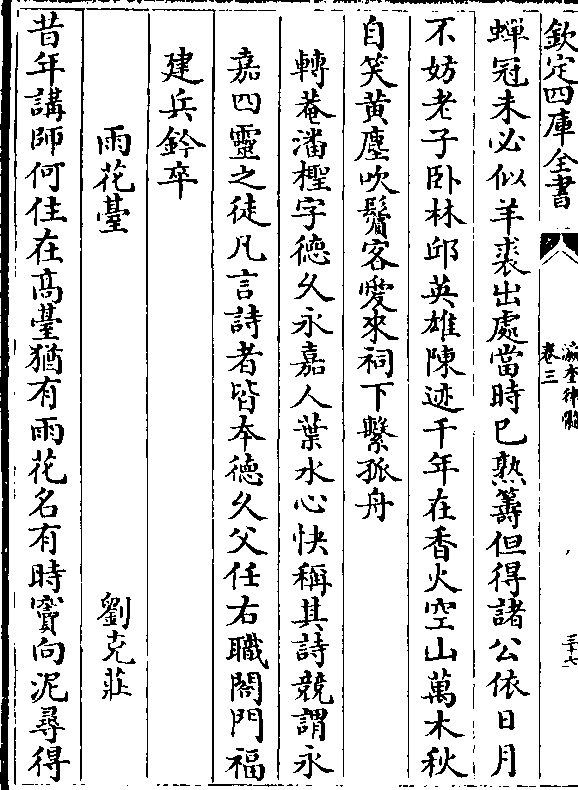 欽定四庫全書
瀛奎律髓
卷三
三十七
蟬冠未必似羊裘出處當時已熟籌但得諸公依日月
不妨老子卧林邱英雄陳迹千年在香火空山萬木秋
自笑黄塵吹鬢客愛來祠下繫孤舟
轉菴潘檉字德久永嘉人葉水心快稱其詩競謂永
嘉四靈之徒凡言詩者皆本德久父任右職閤門福
建兵鈐卒
雨花臺
劉克莊
昔年講師何住在高臺猶有雨花名有時寳向泥尋得